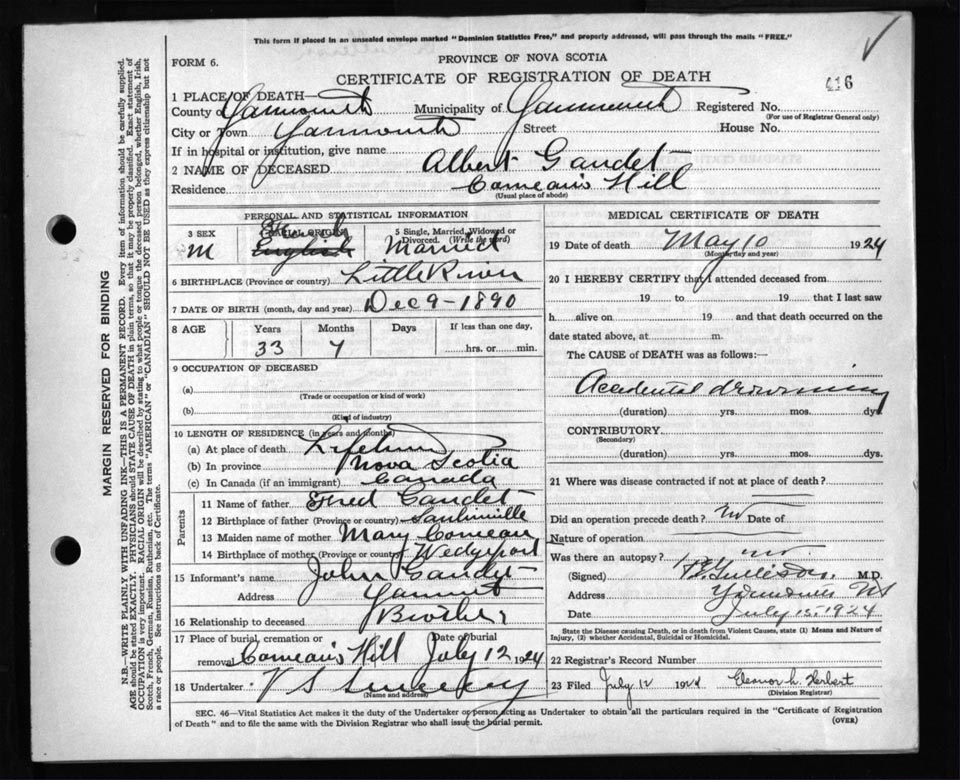 This form if placed in an unsealed envelope marked "Dominion Statistics Free," and properly addressed, will pass through the mails "FREE."
FORM 6.
PROVINCE OF NOVA SCOTIA
CERTIFICATE OF REGISTRATION OF DEATH
6
1 PLACE OF DEATH—
County of Yarmouth Municipality of Yarmouth Registered No.
(For use of Registrar General only)
City or Town Yarmouth Street House No.
If in hospital or institution, give name
2 NAME OF DECEASED Albert Gaudet
Residence Comeau's Hill
(Usual place of abode)
MARGIN RESERVED FOR BINDING
N.B.—WRITE PLAINLY WITH UNFADING INK—THIS IS A PERMANENT RECORD. Every item of information should be carefully supplied.
AGE should be stated EXACTLY. PHYSICIANS should STATE CAUSE OF DEATH in plain terms, so that it may be properly classified. Exact statement of
OCCUPATION is very important. RACIAL ORIGIN will be described by stating to what people or tongue the deceased person belonged, whether English, Irish,
Scotch, French, German, Russian, Ruthenian, etc. The terms "AMERICAN" or "CANADIAN" SHOULD NOT BE USED as they express citizenship but not
a race or people. See instructions on back of Certificate.
PERSONAL AND STATISTICAL INFORMATION
3 SEX
M
RACIAL ORIGIN
French
English
5 Single, Married, Widowed or
Divorced. (Write the word)
Married
6 BIRTHPLACE (Province or country) Little River
7 DATE OF BIRTH (month, day and year) Dec 9-1890
8 AGE Years Months Days If less than one day,
33 7 hrs. or min.
9 OCCUPATION OF DECEASED
(a)
(Trade or occupation or kind of work)
(b)
(Kind of industry)
10 LENGTH OF RESIDENCE (in years and months)
(a) At place of death Lifetime
(b) In province Nova Scotia
(c) In Canada (if an immigrant) Canada
Parents
11 Name of father Fred Gaudet
12 Birthplace of father (Province or country)
13 Maiden name of mother Mary Comeau
14 Birthplace of mother (Province or country) Wedgeport
15 Informant's name John Gaudet
Address
16 Relationship to deceased Brother
17 Place of burial, cremation or Date of burial
removal Comeau's Hill July 12 1924
18 Undertaker V S Sweeney
(Name and address)
MEDICAL CERTIFICATE OF DEATH
19 Date of death May 10 1924
(Month, day and year)
20 I HEREBY CERTIFY that I attended deceased from
19 to 19 that I last saw
h alive on 19 and that death occurred on the
date stated above, at m.
The CAUSE of DEATH was as follows:—
Accidental drowning
(duration) yrs. mos. dys.
CONTRIBUTORY
(Secondary)
(duration) yrs. mos. dys.
21 Where was disease contracted if not at place of death?
Did an operation precede death? no Date of
Nature of operation
Was there an autopsy? no
(Signed) M.D.
Address Yarmouth NS
Date July 15, 1924
State the Disease causing Death, or in death from Violent Causes, state (1) Means and Nature of
Injury, (2) whether Accidental, Suicidal or Homicidal.
22 Registrar's Record Number
23 Filed July 12 1924 Eleanor L. Herbert
(Division Registrar)
SEC. 46—Vital Statistics Act makes it the duty of the Undertaker or person acting as Undertaker to obtain all the particulars required in the "Certificate of Registration
of Death" and to file the same with the Division Registrar who shall issue the burial permit.
(OVER)